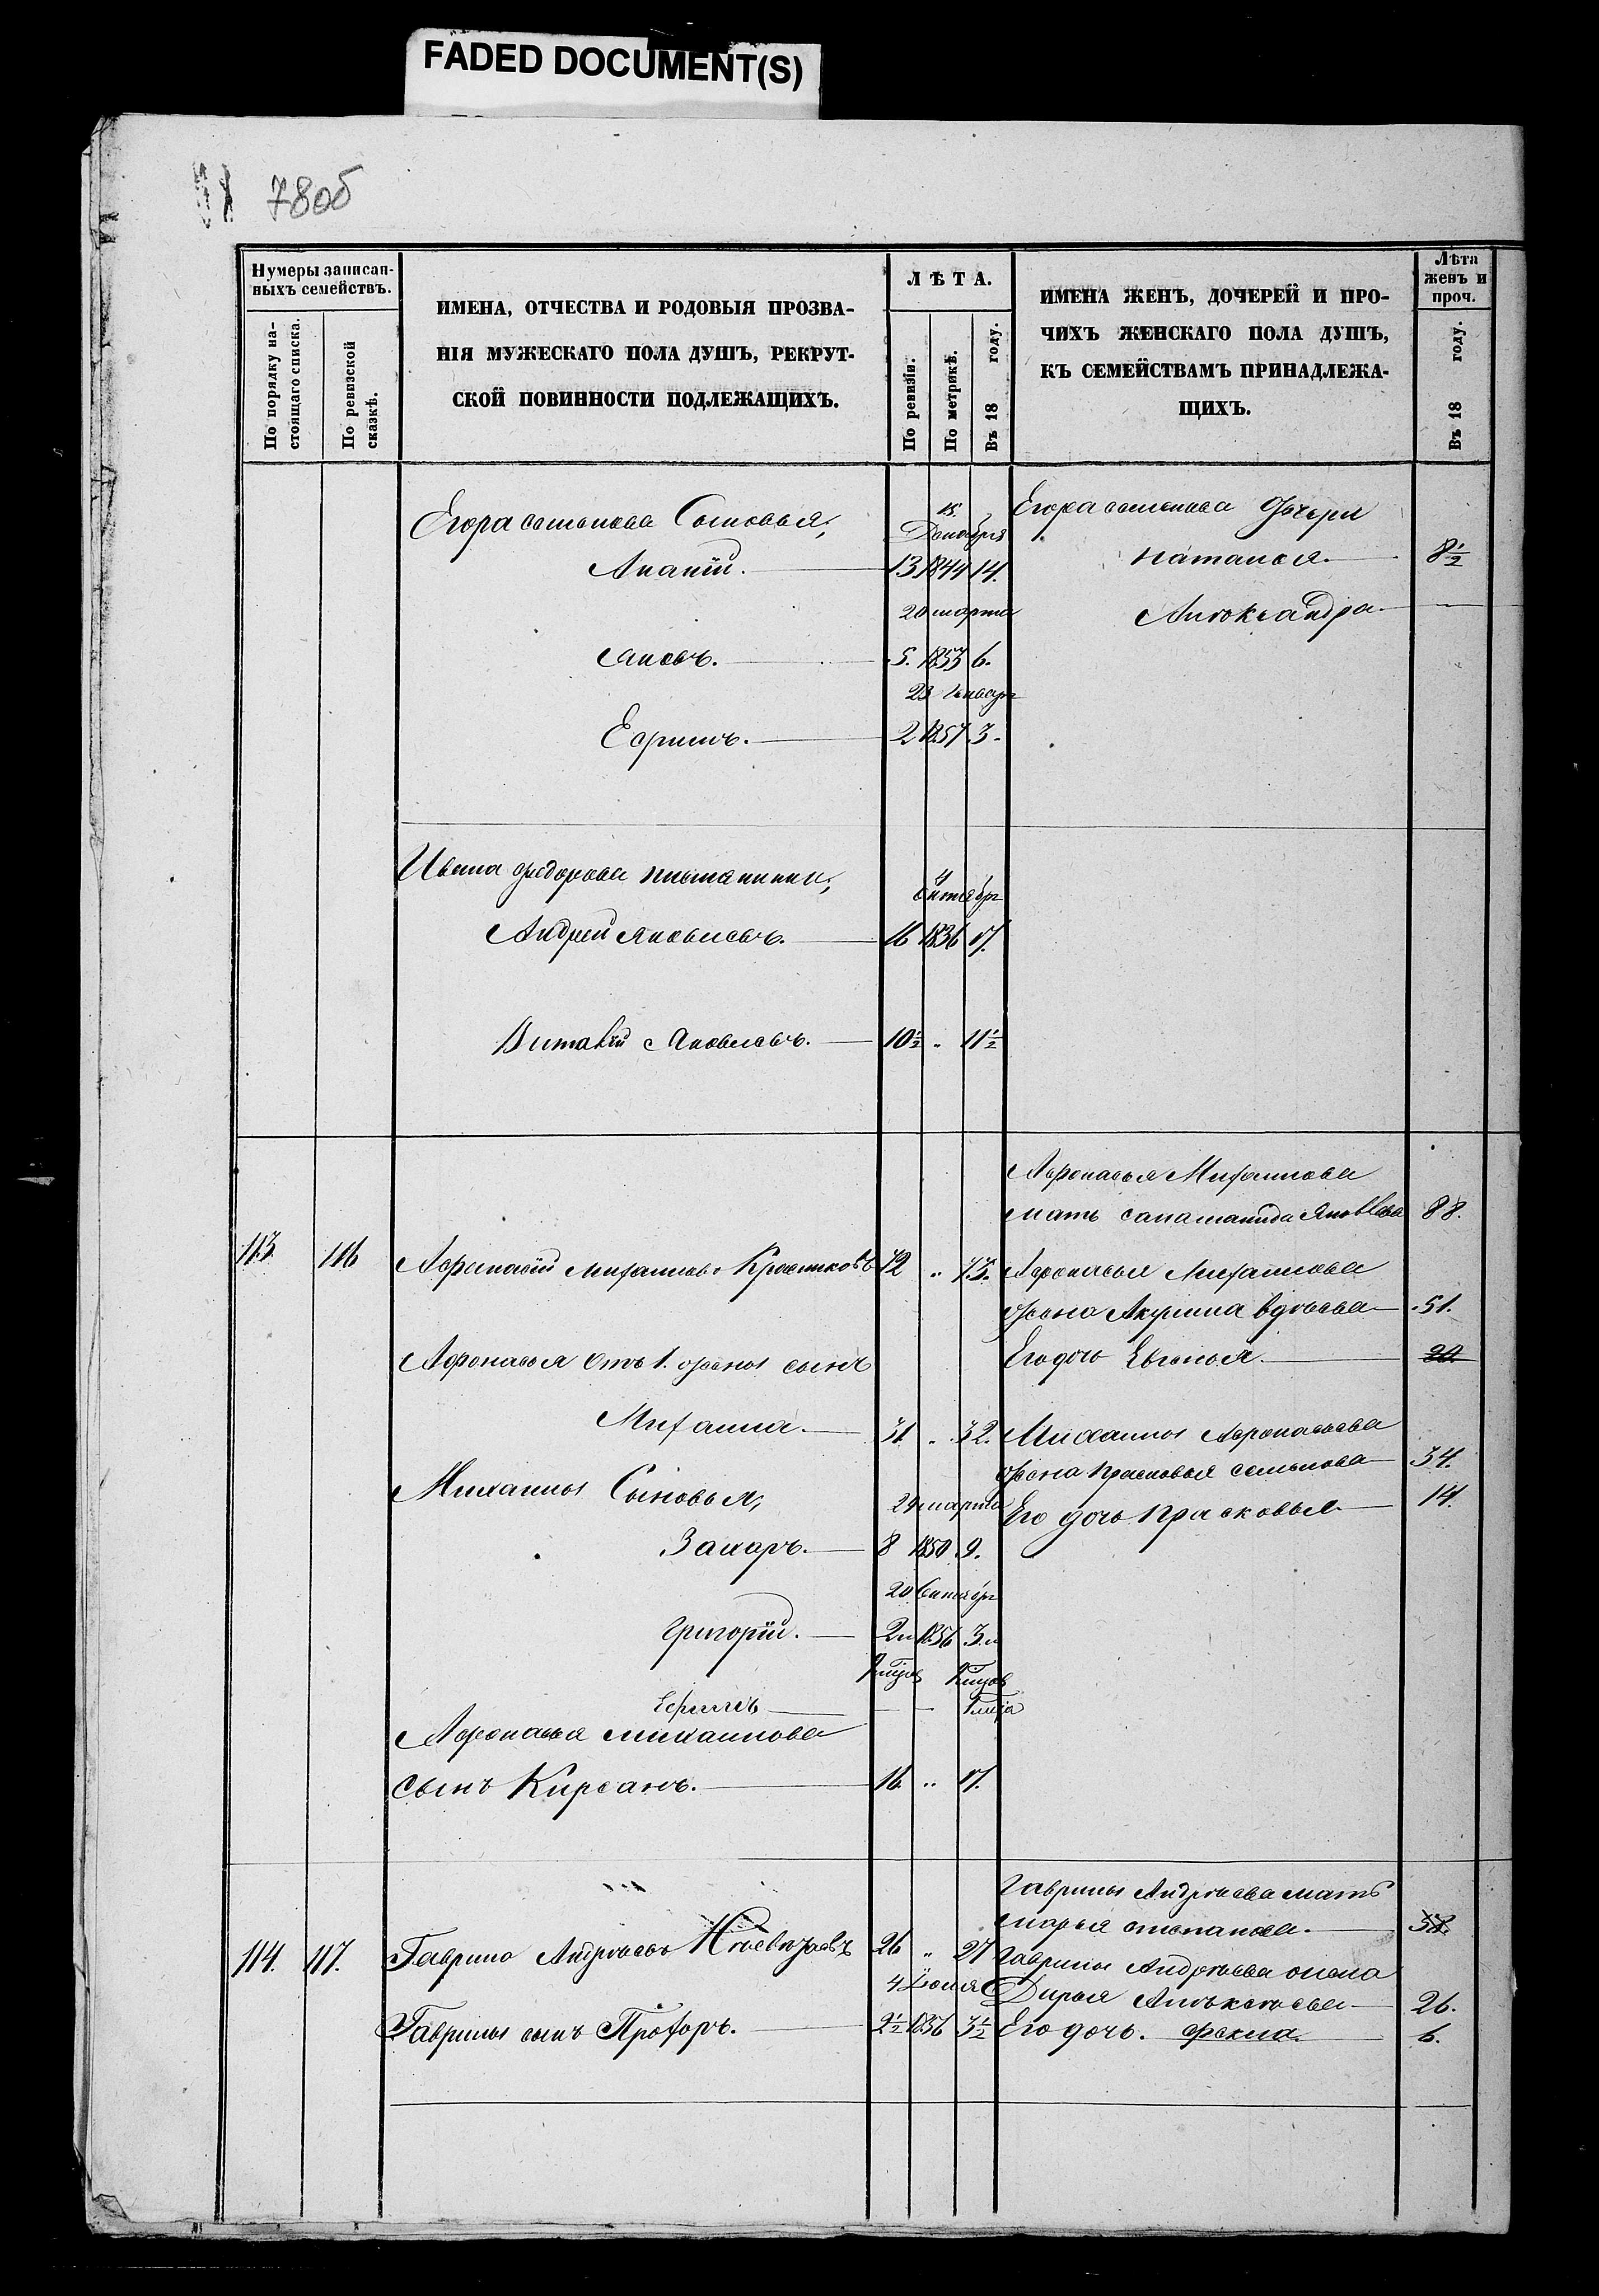 FADED DOCUMENT(S)
78об
Нумеры записан-
ныхъ семействъ.
По порядку на-
стоящаго списка.
По ревизской
сказкѣ.
ИМЕНА, ОТЧЕСТВА И РОДОВЫЯ ПРОЗВА-
НІЯ МУЖЕСКАГО ПОЛА ДУШЪ, РЕКРУТ-
СКОЙ ПОВИННОСТИ ПОДЛЕЖАЩИХЪ.
ЛѢТА.
По ревизіи.
По метрикѣ.
Въ 18 году.
ИМЕНА ЖЕНЪ, ДОЧЕРЕЙ И ПРО-
ЧИХЪ ЖЕНСКАГО ПОЛА ДУШЪ,
КЪ СЕМЕЙСТВАМЪ ПРИНАДЛЕЖА-
ЩИХЪ.
Лѣта
женъ и
проч.
Въ 18 году.
Егора Семенова Сыновья, 15. Декабря Егора Семенова дочери
Ананій. 13 1844 14. Наталья. 8½
20 марта Александра
Яковъ. 5. 1853 6.
23 Января
Ефимъ. 2 1857 3.
Ивана Федорова племянники,
Октябр
Андрей Яковлевъ. 16 1836 17.
Виталій Яковлевъ. 10½ „ 11½
Афонасья Михайлова
мать Саламанида Яковлева 88.
113. 116 Афанасій Михайловъ Красниковъ 72 „ 73. Афонасья Михайлова
жена Акулина 51.
Афонасья отъ 1. жены сынъ Его дочь Евгенья. 20.
Михаила. 31. „ 32. Михайлы Афонасьева
жена Прасковья Семенова 34.
Михайлы Сыновья, 24 марта Его дочь Прасковья 14.
Захаръ. 8 1850 9.
20 Сентябр
Григорій. 2 1856 3
Ефимъ
Афонасья Михайлова
сынъ Кирсанъ. 16 „ 17.
Гаврилы Андреева мать
Марья Степанова.
114. 117. Гаврило Андреевъ 26 „ 27 Гаврилы Андреева жена
4 Іюля Дарья Алексеева 26.
Гаврилы сынъ Прохоръ. 2½ 1856 3½ Его дочь. Фекла. 6.